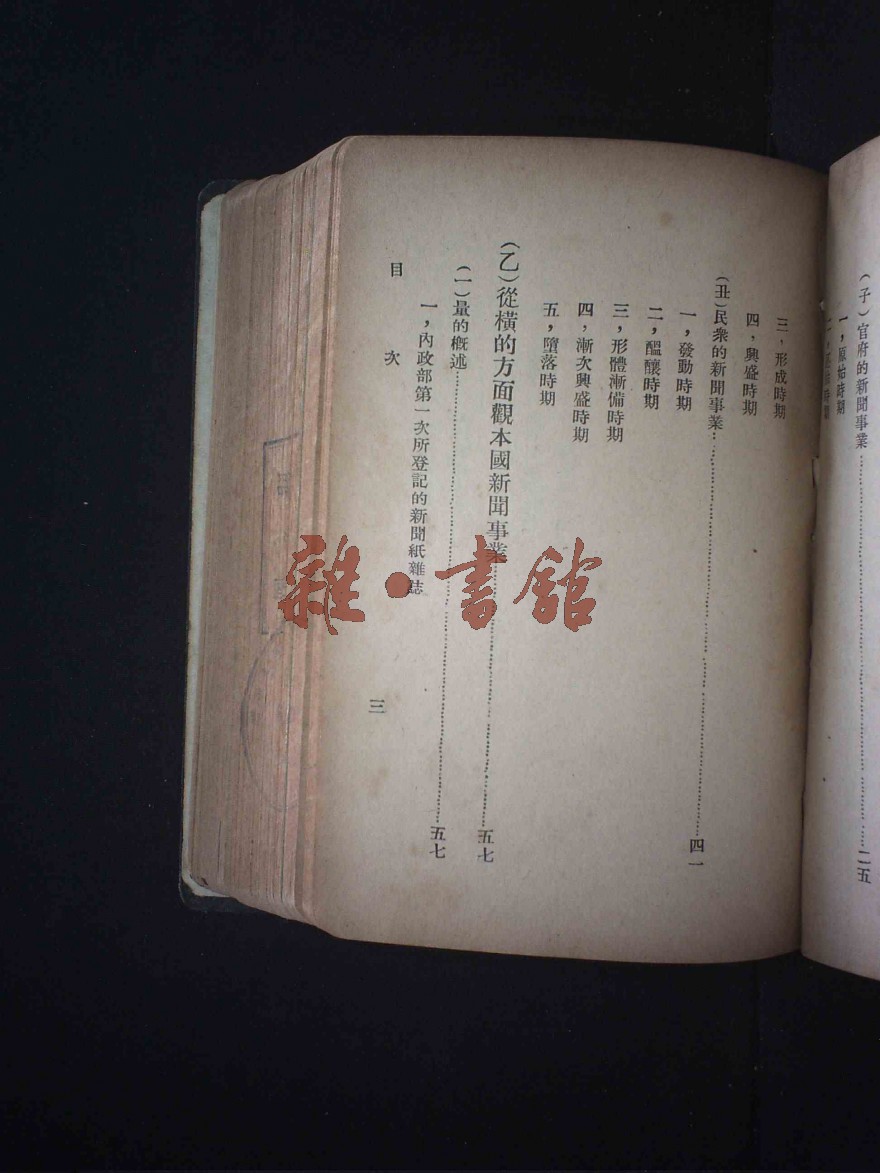 （子）官府的新聞事業……二五
一，原始時期
三，形成時期
四，興盛時期
（丑）民衆的新聞事業……四一
一，發動時期
二，醞釀時期
三，形體漸備時期
四，漸次興盛時期
五，墮落時期
（乙）從橫的方面觀本國新聞事業……五七
（一）量的概述……五七
一，內政部第一次所登記的新聞紙雜誌
目次
三
雜·書館